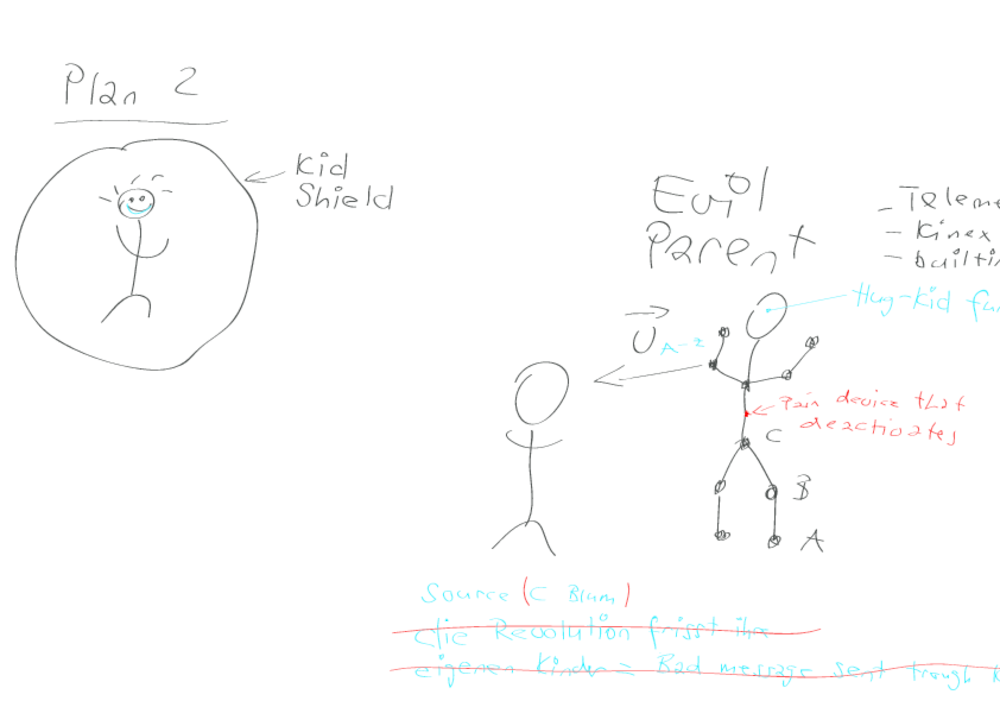 Plan 2
Kid
Shield
Evil
Parent
- Teleme
- Kinex
- builtin
Hug-kid fun
U A-z
Pain device that
deactivates
C
B
A
Source (C Blum)
die Revolution frisst ihr
eigenen Kinder = Bad message sent trough